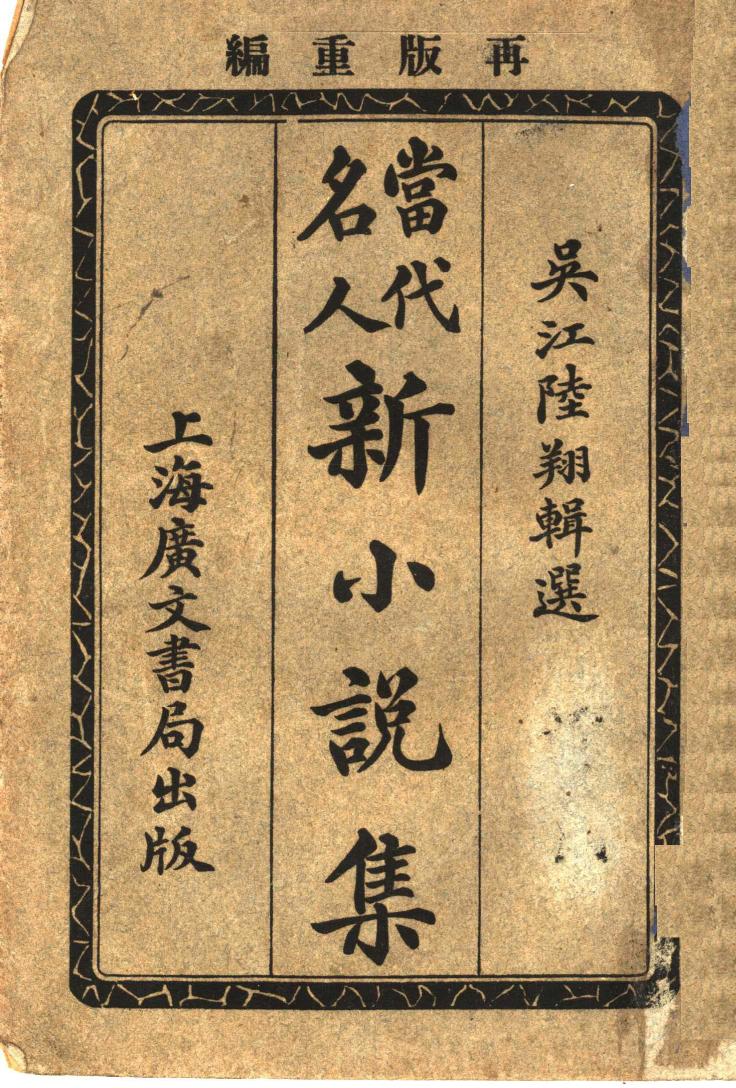 再版重編
吳江陸翔輯選
當代
名人
新小說集
上海廣文書局出版